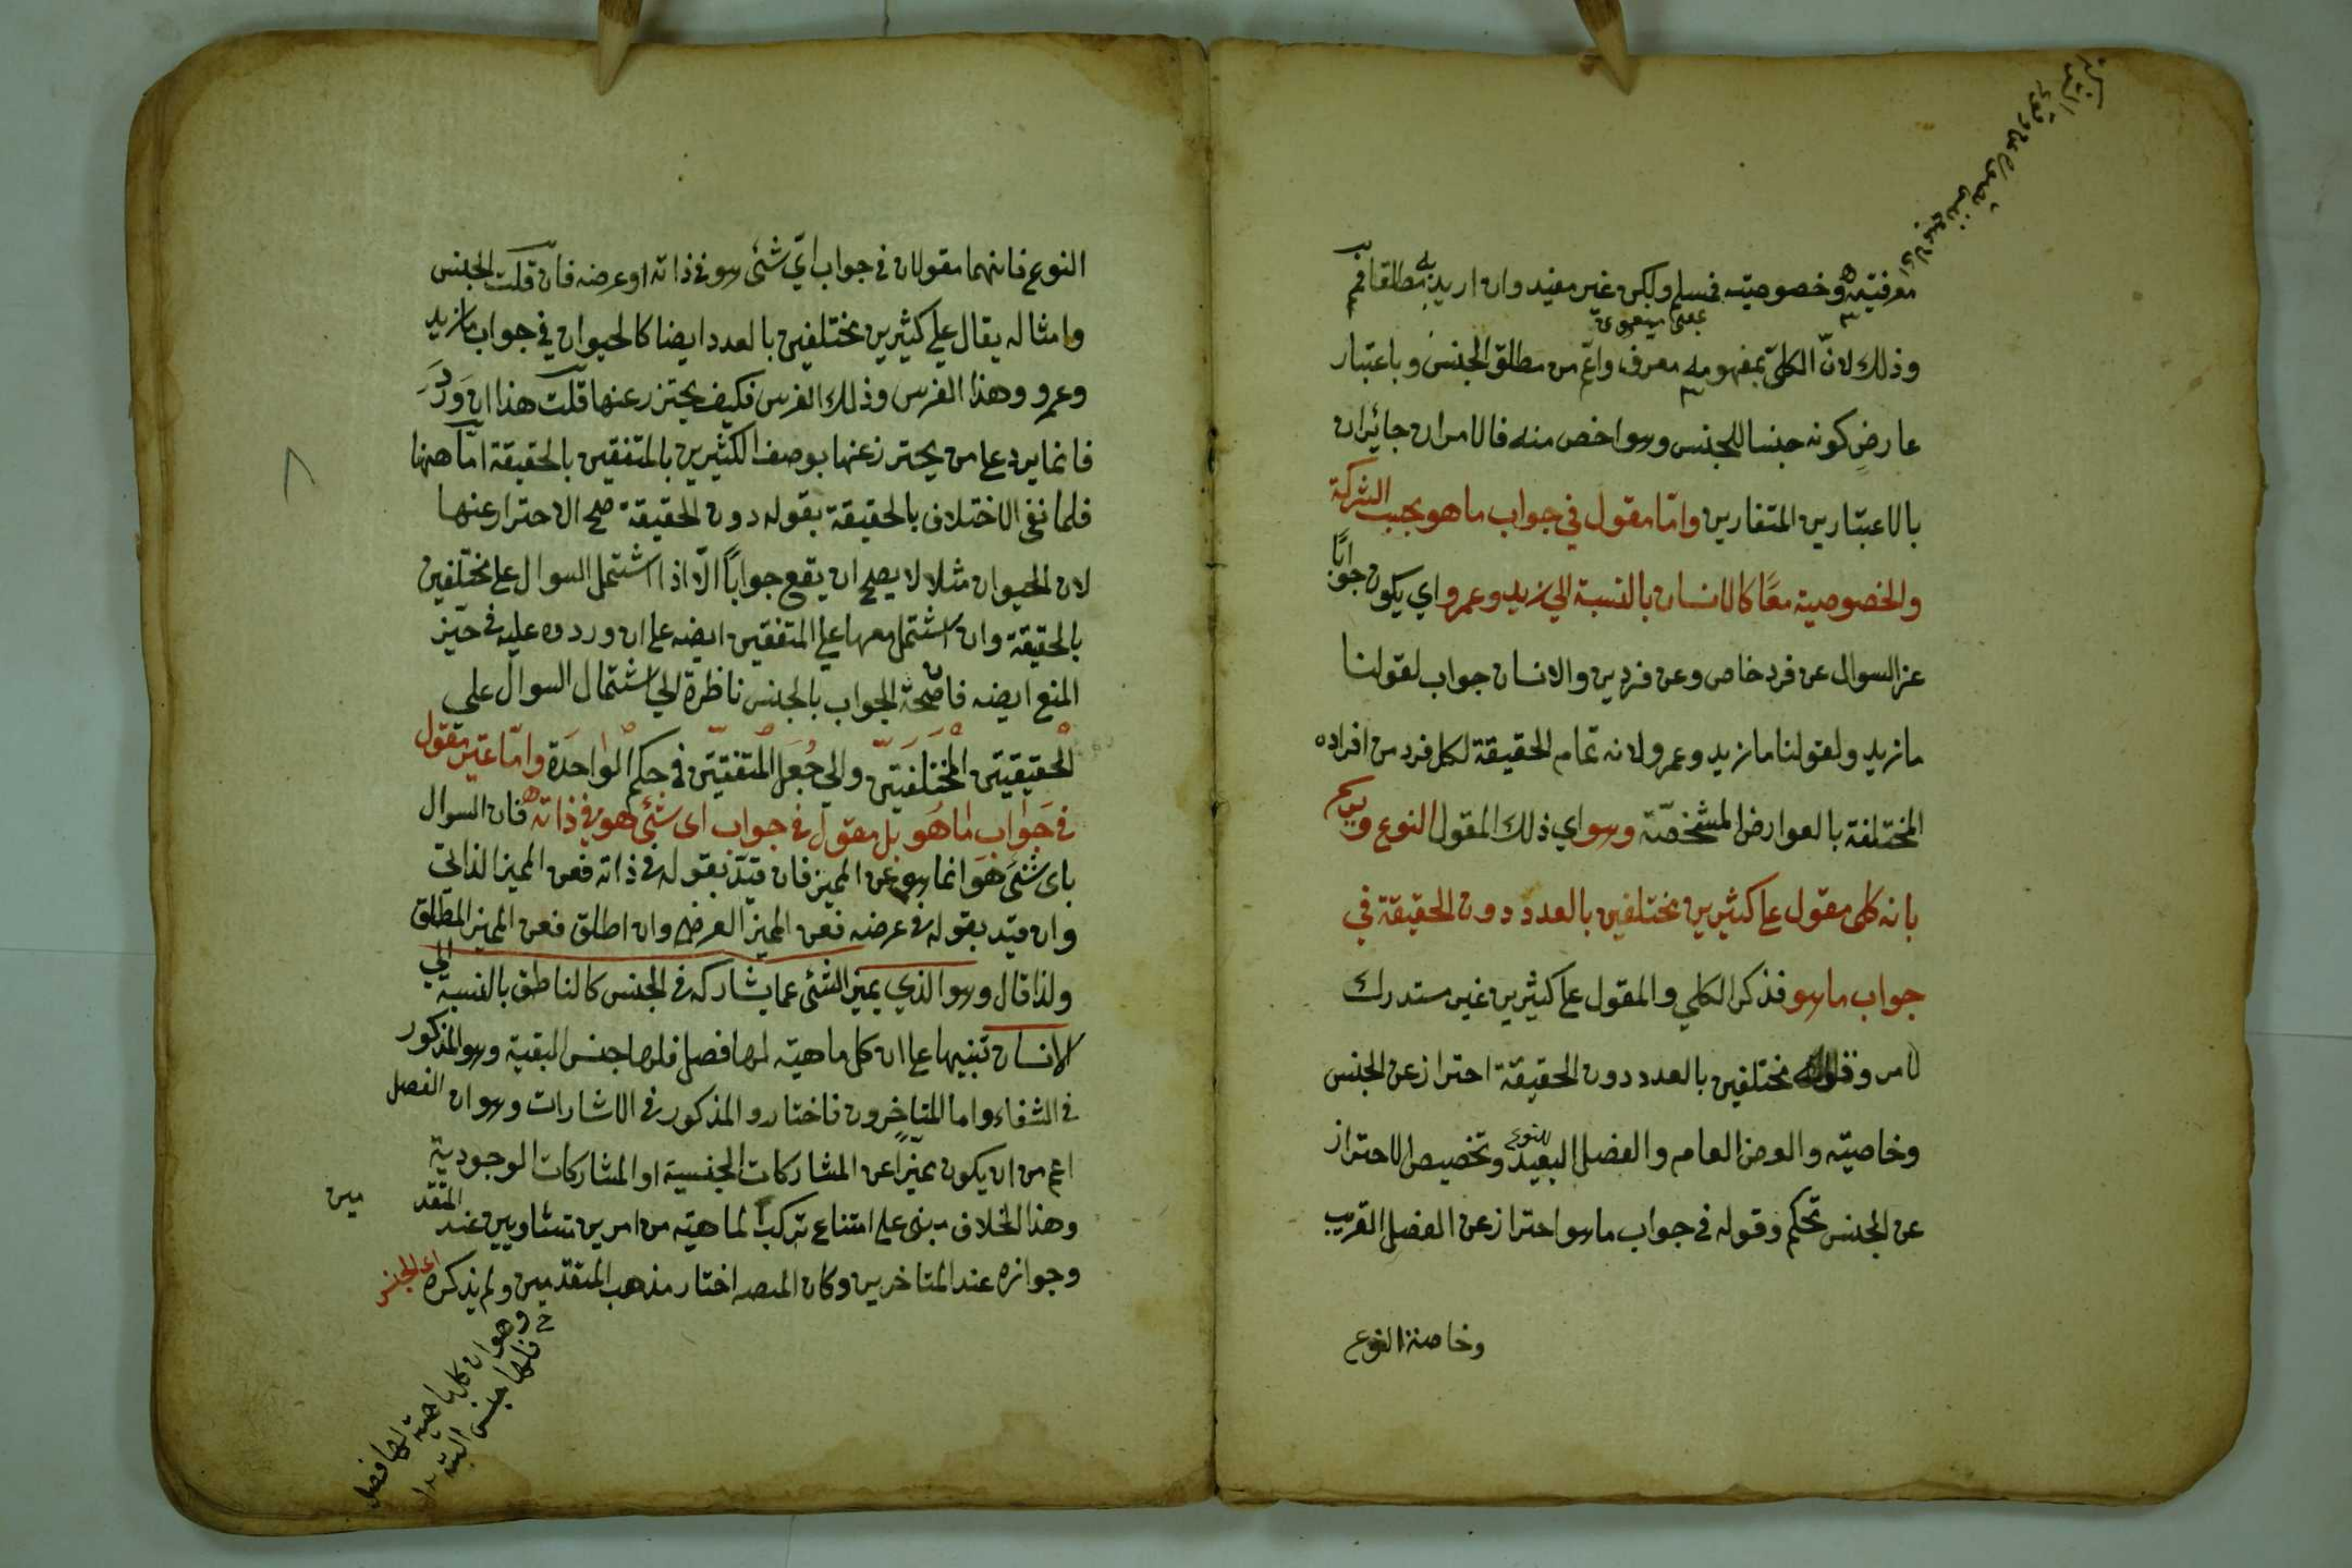 معرفيته وخصوصيته فمسلم ولكن غير مفيد وان اريد به مطلقا فم
وذلك لانّ الكليّ بمفهومه معرف واعم من مطلق الجنس وباعتبار
عارض كونه جنسا للجنس وهو اخص منه فالامران جائزان
بالاعتبارين المتغايرين وامّا مقول في جواب ما هو بحسب الشركة
والخصوصية معًا كالانسان بالنسبة الي زيد وعمرو اي يكون جوابًا
عن السوال عن فرد خاص وعن فردين والانسان جواب لقولنا
ما زيد ولقولنا ما زيد وعمرو لانه تمام الحقيقة لكل فرد من افراده
المختلفة بالعوارض المشخصّة وهو اي ذلك المقول النوع ويرسم
بانه كلي مقول علي كثيرين مختلفين بالعدد دون الحقيقة في
جواب ما هو فذكر الكلي والمقول علي كثيرين غير مستدرك
لامر وقوله مختلفين بالعدد دون الحقيقة احتراز عن الجنس
وخاصيته والعرض العام والفصل البعيد للنوع وتخصيص الاحتراز
عن الجنس تحكم وقوله في جواب ما هو احتراز عن الفصل القريب
وخاصة النوع
النوع فانهما مقولان في جواب ايّ شئ هو في ذاته او عرضه فان قلت الجنس
وامثاله يقال علي كثيرين مختلفين بالعدد ايضا كالحيوان في جواب ما زيد
وعمرو وهذا الفرس وذلك الفرس فكيف يحترز عنها قلت هذا ان وَرَدَ
فانما يرد علي من يحترز عنها بوصف الكثيرين بالمتفقين بالحقيقة امّا ههنا
فلما نفي الاختلاف بالحقيقة بقوله دون الحقيقة صح الاحتراز عنها
لان الحيوان مثلا لا يصلح ان يقع جواباً الّا اذا اشتمل السوال علي مختلفين
بالحقيقة وان اشتمل معها علي المتفقين ايضه علي ان وروده عليه في حيّز
المنع ايضه فان صحة الجواب بالجنس ناظرة الي اشتمال السوال علي
الحقيقتين المختلفتين والي جعل المتفقتين في حكم الواحدة وامّا غير مقول
في جواب ما هو بل مقول في جواب اي شئ هو في ذاته فان السوال
باي شئ هو انما هو عن المميز فان قيّد بقوله في ذاته فعن المميز الذاتي
وان قيّد بقوله في عرضه فعن المميز العرضي وان اطلق فعن المميز المطلق
ولذا قال وهو الذي يميز الشئ عما يشاركه في الجنس كالناطق بالنسبة الي
الانسان تنبيها علي ان كل ماهيّة لها فصل فلها جنس البقية وهو المذكور
في الشفاء واما المتاخرون فاختاروا المذكور في الاشارات وهو ان الفصل
اعم من ان يكون مميّزا عن المشاركات الجنسية او المشاركات الوجودية
وهذا الخلاف مبني علي امتناع تركب الماهيّة من امرين متساويين عند المتقد
مين
وجوازه عند المتاخرين وكان المصه اختار مذهب المتقدمين ولم يذكره اي الجنس
وهو ان كل ماهية لها فصل
فلها جنس البتة